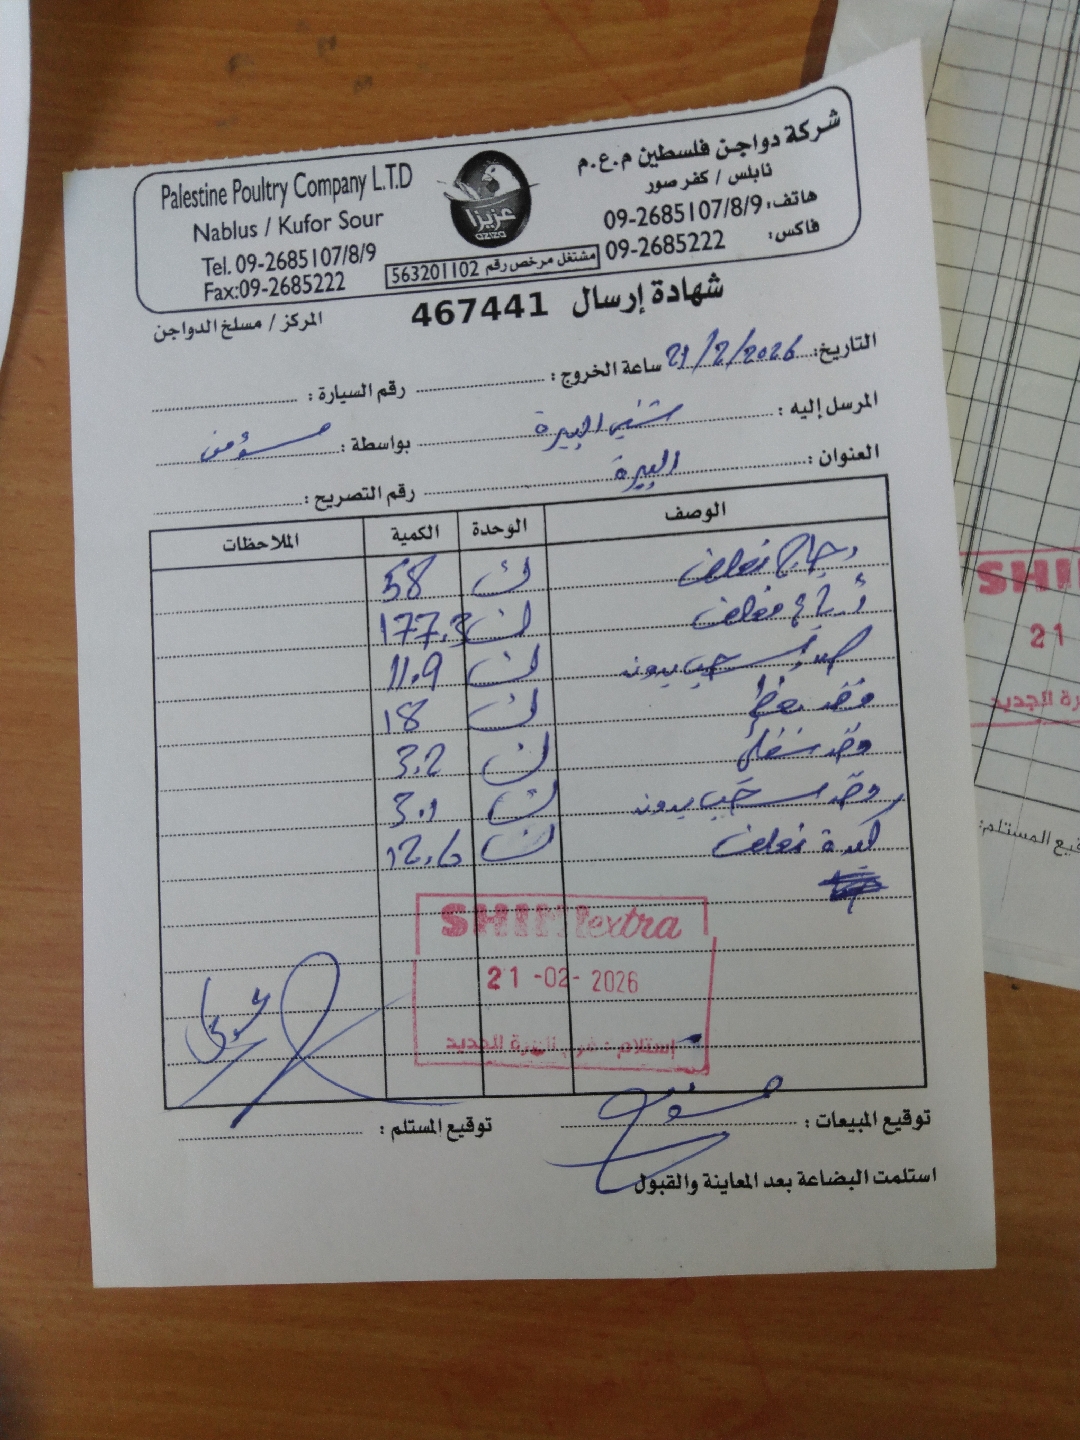 Palestine Poultry Company L.T.D
Nablus / Kufor Sour
Tel. 09-2685107/8/9
Fax:09-2685222
عزيزا
aziza
مشتغل مرخص رقم 563201102
شركة دواجن فلسطين م.ع.م
نابلس / كفر صور
هاتف: 09-2685107/8/9
فاكس: 09-2685222
شهادة إرسال 467441
المركز / مسلخ الدواجن
التاريخ: 21/2/2026 ساعة الخروج : رقم السيارة :
المرسل إليه : شني البيرة بواسطة :
العنوان : البيرة رقم التصريح :
الوصف الوحدة الكمية الملاحظات
دجاج مغلف ك 58
مغلف ك 177.3
سحب بدون ك 11.9
ك 18
ك 3.2
سحب بدون ك 3.1
كبدة مغلف ك 12.6
SHINI extra
21 -02- 2026
إستلام : فرع البيرة الجديد
توقيع المبيعات : توقيع المستلم :
استلمت البضاعة بعد المعاينة والقبول
SHI
21
رة الجديد
قيع المستلم: